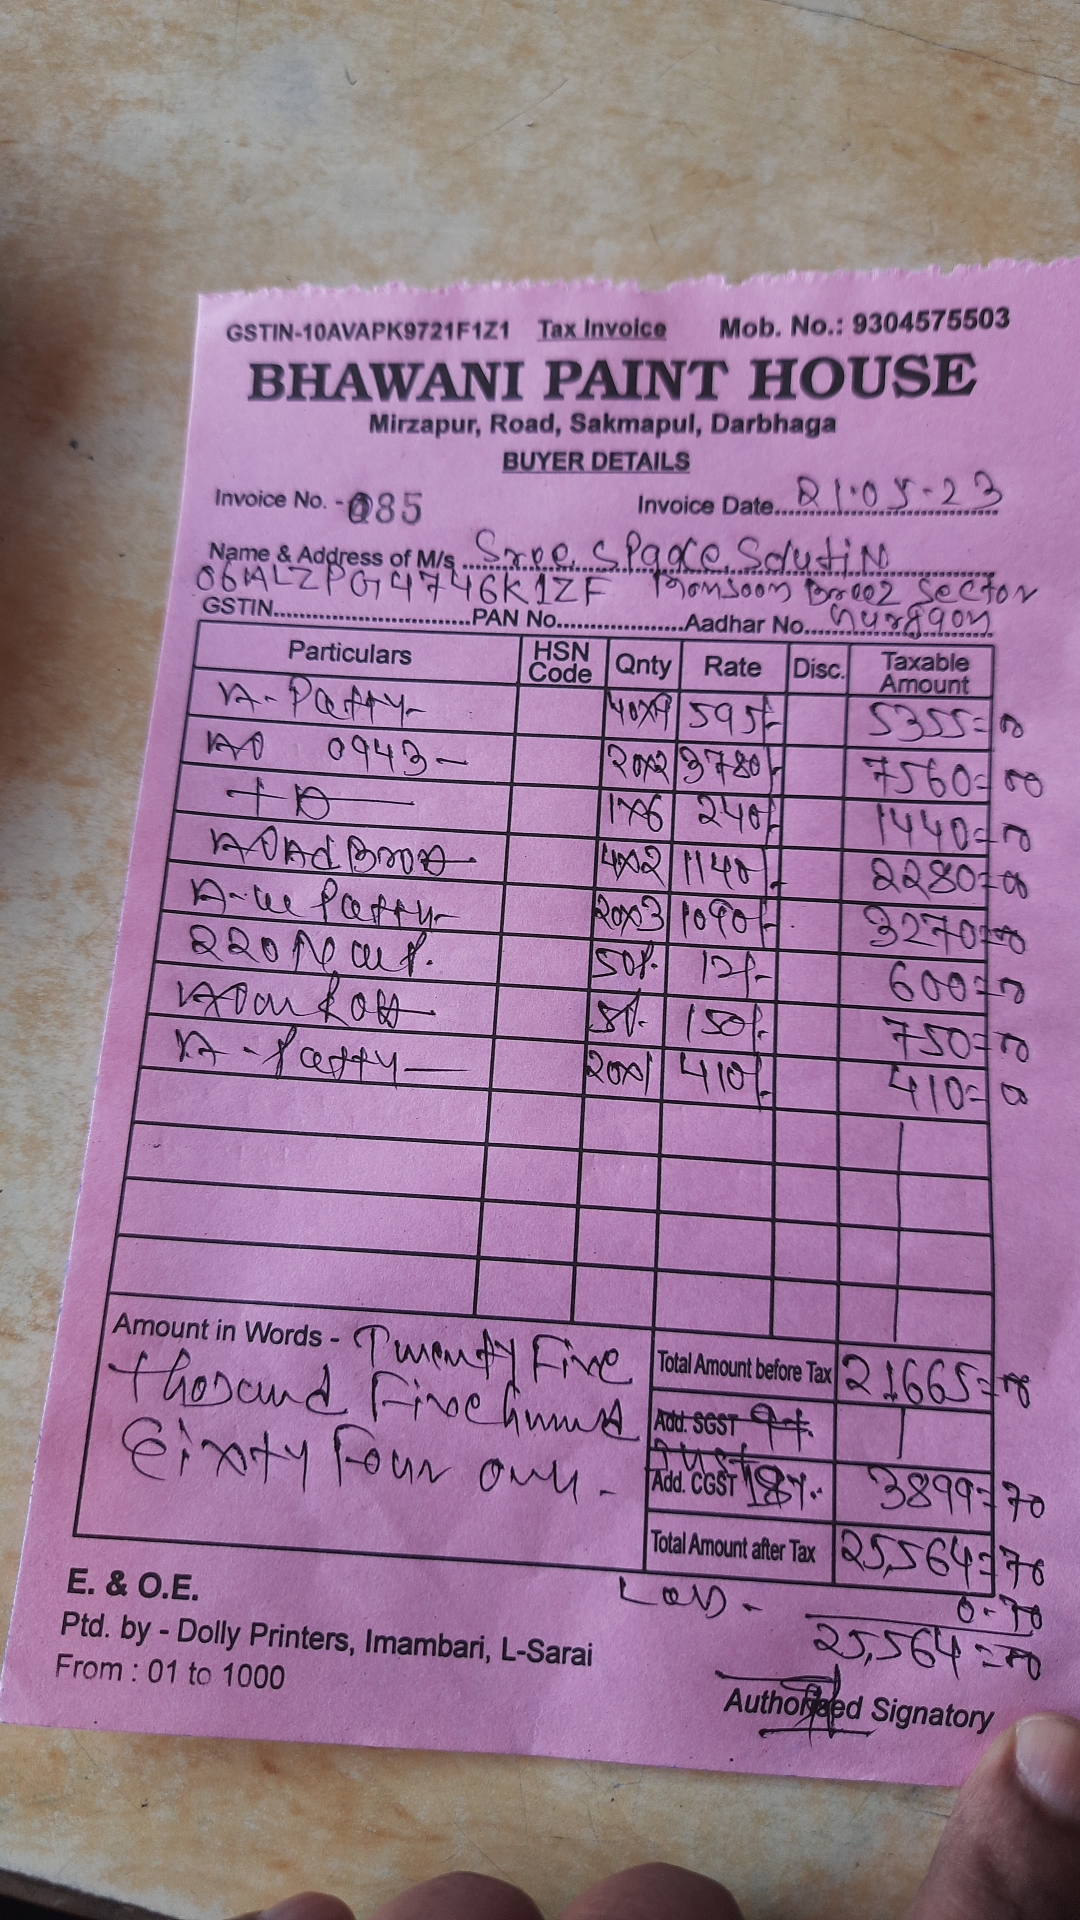 GSTIN-10AVAPK9721F1Z1 Tax Invoice Mob. No.: 9304575503
BHAWANI PAINT HOUSE
Mirzapur, Road, Sakmapul, Darbhaga
BUYER DETAILS
Invoice No. - 085 Invoice Date 21.05-23
Name & Address of M/s Sree Space Solutin
06ALZPG4746K1ZF Monsoon Breez Sector
GSTIN PAN No. Aadhar No.
Particulars HSN Code Qnty Rate Disc. Taxable Amount
A-Patty 40x9 595/- 5355=00
0943 20x2 3780/- 7560=00
1x6 240/- 1440=00
4x2 1140/- 2280=00
Patty 20x3 1090/- 3270=00
220 12/- 600=00
150/- 750=00
A-Patty 20x1 410/- 410=00
Amount in Words - Twenty Five
thosand Five hunred
Sixty Four only -
Total Amount before Tax 21665=00
Add. SGST 9%
Add. CGST 18% 3899=70
Total Amount after Tax 25,564=70
E. & O.E.
Less - 0-70
25,564=00
Ptd. by - Dolly Printers, Imambari, L-Sarai
From : 01 to 1000
Authorised Signatory